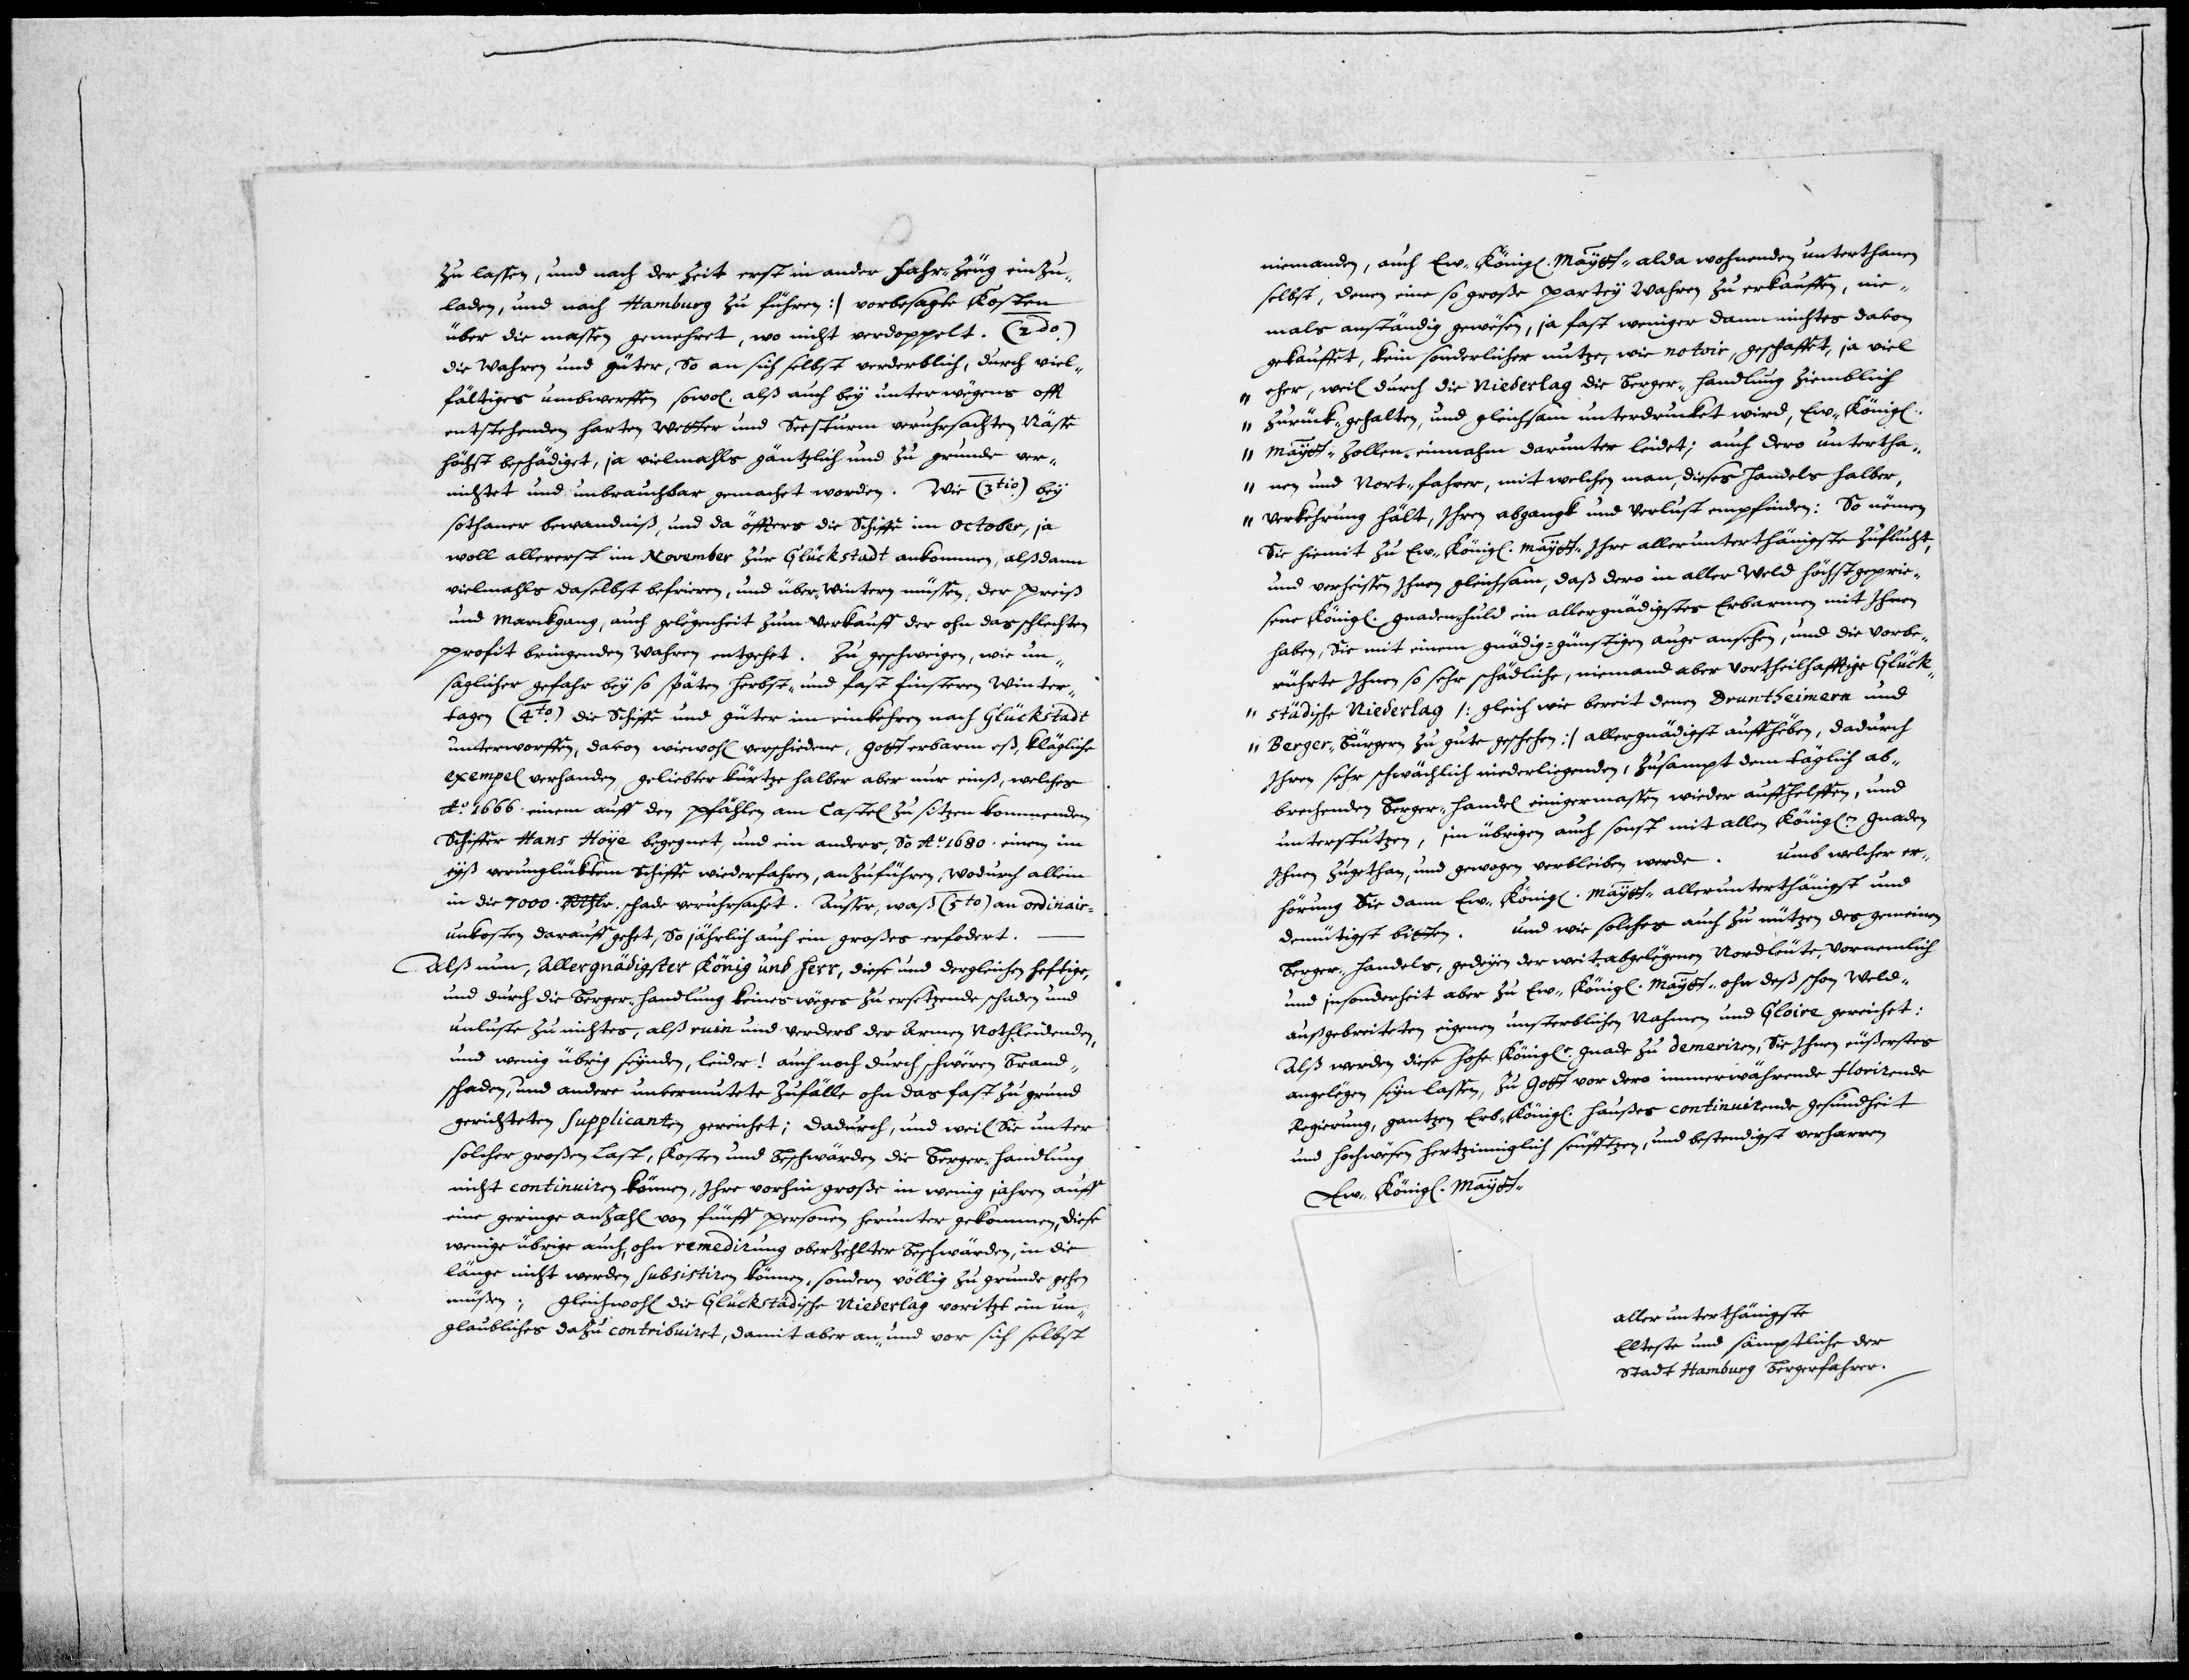 zu lassen, und nach der Zeit erst in ander Fahr-Zeug einzu„
laden, und nach Hamburg zu führen :/ vorbesagte Kosten
über die massen gemehret, wo nicht verdoppelt. (2do.)
die Wahren und Güter, So an sich selbst verderblich, durch viel„
fältiges umbwerffen sowol. alß auch bey unterwegens offt
entstehenden harten Wetter und Seesturm veruhrsachten Nässe
höchst beschädiget, ja vielmahls gäntzlich und zu grunde ver„
nichtet und unbrauchbar gemachet worden. Wie (3tio.) bey
sothaner bewandniß, und da öffters die Schiffe im October, ja
woll allererst im November zur Glückstadt ankommen, alßdann
vielmahls daselbst befrieren, und über-Wintern müssen, der Preiß
und Marckgang, auch gelegenheit zum Verkauff der ohn das schlechten
profit bringenden Wahren entgehet. Zu geschweigen, wie un„
saglicher gefahr bey so späten Herbst- und fast finsteren Winter„
tagen (4to.) die Schiffe und Güter im einkehren nach Glückstadt
unterworffen, davon wiewohl verschiedene, Gott erbarm eß, klägliche
exempel verhanden, geliebter kürtze halber aber nur einß, welches
Ao. 1666. einem auff den Pfählen am Castel zu sitzen kommenden
Schiffer Hans Hoye begegnet, und ein anders, So Ao 1680. einem im
eyß verunglücktem Schiffe wiederfahren, anzuführen, wodurch allein
in die 7000. Rthlr. schade veruhrsachet. Ausser, waß (5to) an ordinair-
unkosten darauff gehet, So jährlich auch ein großes erfodert.
Alß nun, Allergnädigster König und Herr, diese und dergleichen hefftige,
und durch die Berger-handlung keines weges zu ersetzende schaden und
unluste zu nichtes, alß ruin und verderb der Armen Nothleidenden,
und wenig übrig seynden, leider! auch noch durch schweren Brand„
schaden, und andere unvermutete Zufälle ohn das fast zu grund
gerichteten Supplicanten gereichet; dadurch, und weil Sie unter
solcher großen Last, Kosten und Beschwärden die Berger-handlung
nicht continuiren können, Ihre vorhin große in wenig jahren auff
eine geringe anzahl von fünff Personen herunter gekommen, diese
wenige übrige auch, ohn remedirung oberzehlter Beschwärden, in die
länge nicht werden subsistiren können, sondern völlig zu grunde gehen
müßen; gleichwohl die Glückstädische Niederlag voritzt ein un„
glaubliches dazu contribuiret, damit aber an- und vor sich selbst
niemanden, auch Ew. Königl. Maytt. alda wohnenden unterthanen
selbst, denen eine so große partey Wahren zu erkauffen, nie„
mals anständig gewesen, ja fast weniger dann nichtes davon
gekauffet, kein sonderlicher nutze, wie notoir, geschaffet, ja viel
" eher, weil durch die Niederlag die Berger-handlung ziemblich
" zurück-gehalten, und gleichsam unterdrucket wird, Ew. Königl.
" Maytt. Zollen-einnahm darunter leidet; auch dero untertha„
" nen und Nort-fahrer, mit welchen man, dieses Handels halber,
" Verkehrung hält, Ihren abgangk und Verlust empfinden: So nemen
Sie hiemit zu Ew. Königl. Maytt. Ihre allerunterthänigste Zuflucht,
und verheissen Ihnen gleichsam, daß dero in aller Weld höchstgeprie„
sene Königl. gnadenhuld ein allergnädigstes Erbarmen mit Ihnen
haben, Sie mit einem gnädig-günstigen auge ansehen, und die vorbe„
rührte Ihnen so sehr schädliche, niemand aber vortheilhafftige Glück„
" städische Niederlag /: gleich wie bereit denen Druntheimern und
" Berger-Bürgern zu gute geschehen :/ allergnädigst auffheben, dadurch
Ihren sehr schwächlich niederliegenden, zusampt dem täglich ab„
brechenden Berger-handel einigermassen wieder auffhelffen, und
unterstutzen, im übrigen auch sonst mit allen Königl. Gnaden
Ihnen zugethan, und gewogen verbleiben werde. Umb welcher er„
hörung Sie dann Ew. Königl. Maytt. allerunterthänigst und
demütigst bitten. Und wie solches auch zu nützen des gemeinen
Berger-handels, gedeyen der weit-abgelegenen Nordleute, vornemlich
und insonderheit aber zu Ew. Königl. Maytt. ohn deß schon Weld„
außgebreiteten eigenen unsterblichen Nahmen und Gloire gereichet:
Alß werden diese hohe Königl. Gnade zu demeriren, Sie Ihnen eußerstes
angelegen seyn lassen, zu Gott vor dero immerwährende florirende
Regierung, gantzen Erb-Königl. Haußes continuirende gesundheit
und hochwesen hertzinniglich seufftzen, und bestendigst verharren
Ew. Königl. Maytt.
aller unterthänigste
Elteste und sämptliche der
Stadt Hamburg Bergerfahrer.